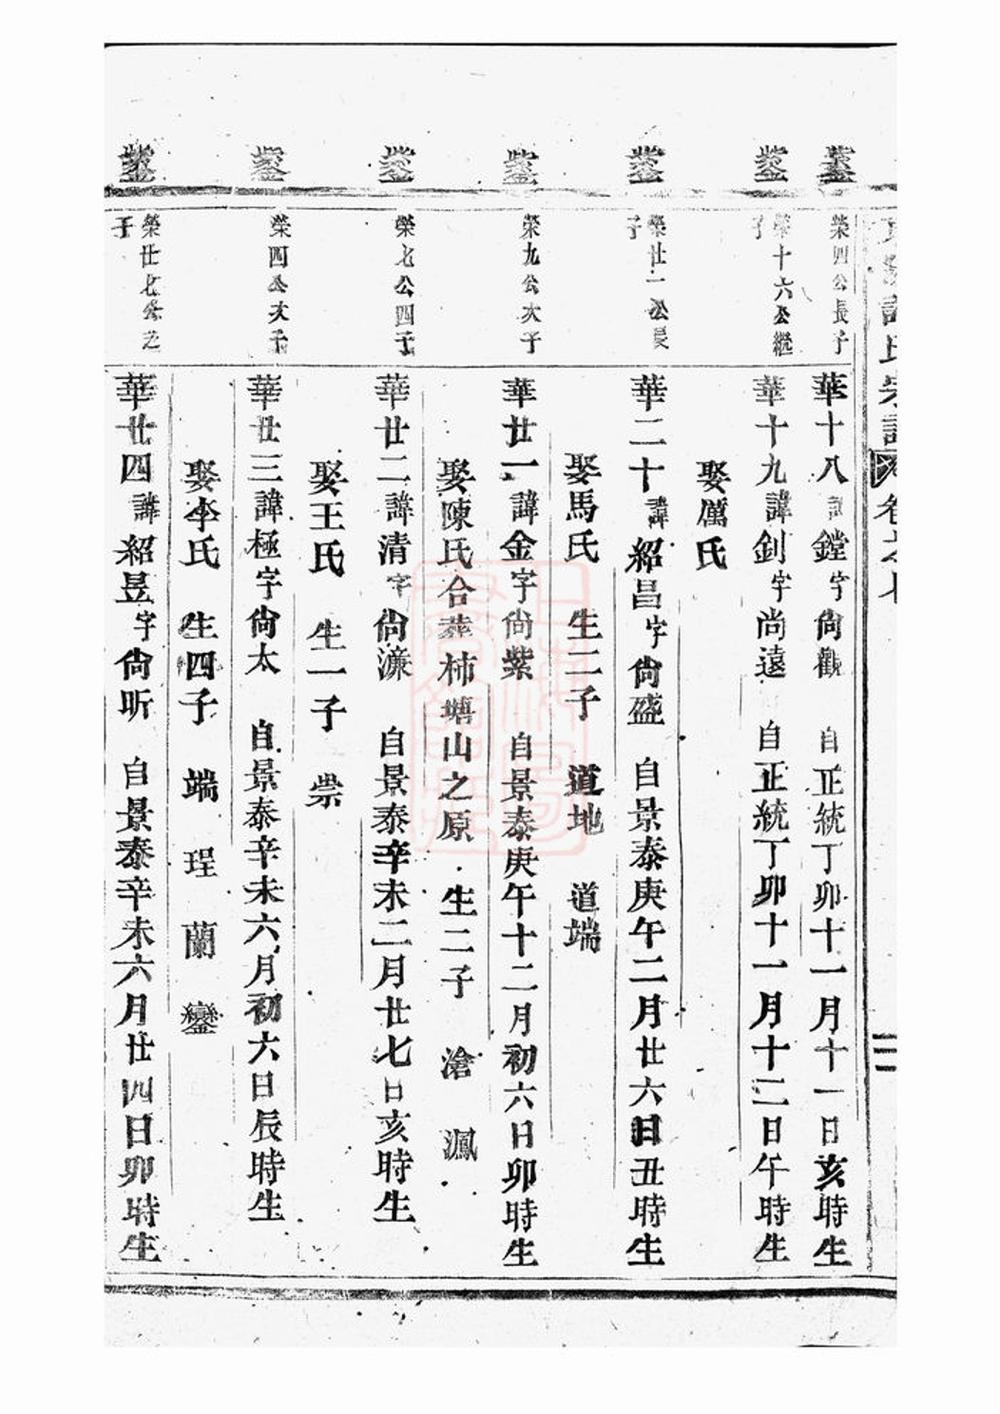 鋆
榮四公長子
華十八諱鏜字尙觀 自正統丁卯十一月十一日亥時生
鋆
榮十六公繼
子
華十九諱釗字尚遠 自正統丁卯十一月十二日午時生
娶厲氏
鋆
榮廿一公長
子
華二十諱紹昌字尙盛 自景泰庚午二月廿六日丑時生
娶馬氏 生二子 道地 道端
鋆
榮九公次子
華廿一諱金字尙紫 自景泰庚午十二月初六日卯時生
娶陳氏合葬柿塘山之原 生二子 滄 渢
鋆
榮七公四子
華廿二諱清字尙濂 自景泰辛未二月廿七日亥時生
娶王氏 生一子 崇
鋆
榮四公次子
華廿三諱極字尙太 自景泰辛未六月初六日辰時生
娶李氏 生四子 端 珵 蘭 鑾
鋆
榮廿七公之
子
華廿四諱紹昱字尙昕 自景泰辛未六月廿四日卯時生